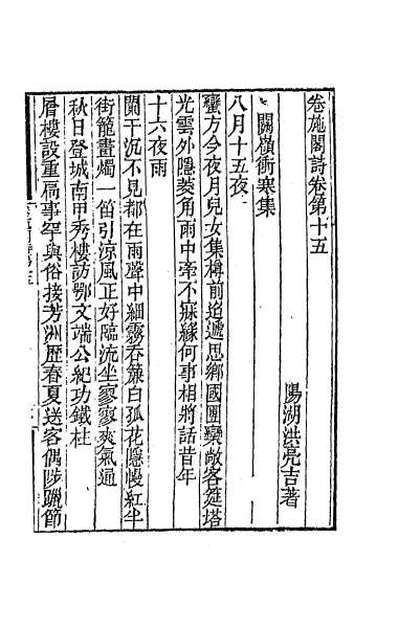 卷施閣詩卷第十五
陽湖洪亮吉著
關嶺衝寒集
八月十五夜
蠻方今夜月兒女集樽前迢遞思鄉國團欒敞客筵塔
光雲外隱菱角雨中牽不寐緣何事相將話昔年
十六夜雨
闌干沉不見都在雨聲中細霧吞簾白孤花隱幔紅半
街籠畫燭一笛引涼風正好臨流坐寥寥爽氣通
秋日登城南甲秀樓訪鄂文端公紀功鐵柱
層樓設重扃事罕與俗接芳洲歷春夏送客偶陟躡節